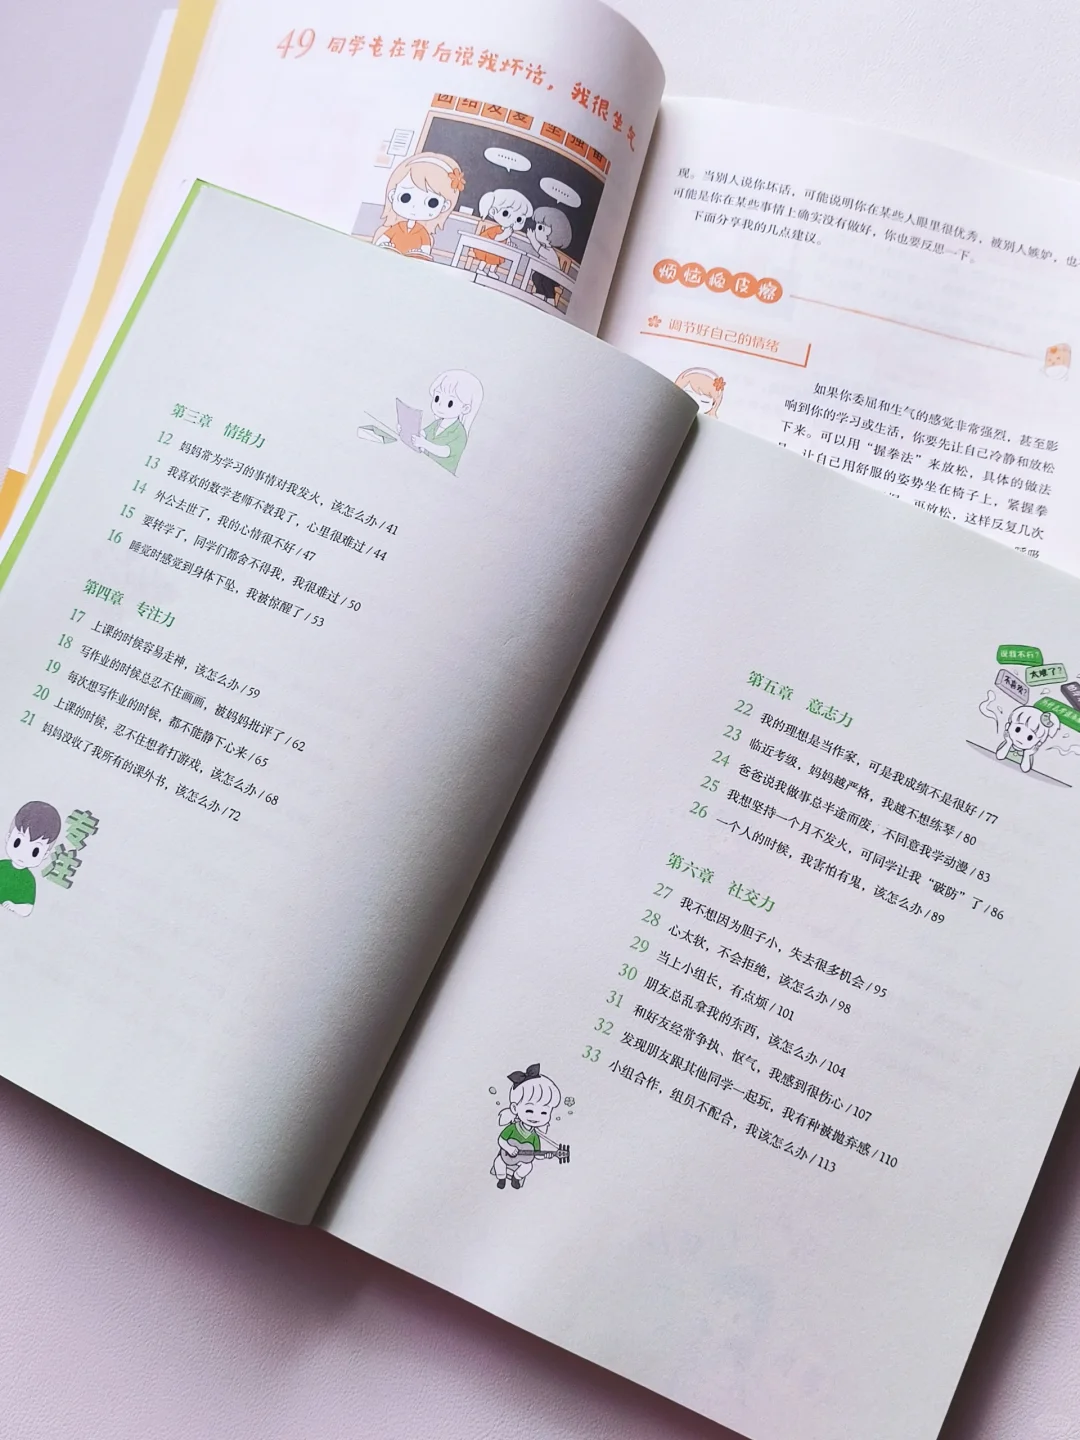 49 同学老在背后说我坏话，我很生气
团结友爱
……
……
现。当别人说你坏话，可能说明你在某些人眼里很优秀，被别人嫉妒，也
可能是你在某些事情上确实没有做好，你也要反思一下。
下面分享我的几点建议。
烦恼橡皮擦
调节好自己的情绪
如果你委屈和生气的感觉非常强烈，甚至影
响到你的学习或生活，你要先让自己冷静和放松
下来。可以用“握拳法”来放松，具体的做法
让自己用舒服的姿势坐在椅子上，紧握拳
再放松，这样反复几次
呼吸
第三章 情绪力
12 妈妈常为学习的事情对我发火，该怎么办 / 41
13 我喜欢的数学老师不教我了，心里很难过 / 44
14 外公去世了，我的心情很不好 / 47
15 要转学了，同学们都舍不得我，我很难过 / 50
16 睡觉时感觉到身体下坠，我被惊醒了 / 53
第四章 专注力
17 上课的时候容易走神，该怎么办 / 59
18 写作业的时候总忍不住画画，被妈妈批评了 / 62
19 每次想写作业的时候，都不能静下心来 / 65
20 上课的时候，忍不住想着打游戏，该怎么办 / 68
21 妈妈没收了我所有的课外书，该怎么办 / 72
专注
说我不行？
太难了？
第五章 意志力
22 我的理想是当作家，可是我成绩不是很好 / 77
23 临近考级，妈妈越严格，我越不想练琴 / 80
24 爸爸说我做事总半途而废，不同意我学动漫 / 83
25 我想坚持一个月不发火，可同学让我“破防”了 / 86
26 一个人的时候，我害怕有鬼，该怎么办 / 89
第六章 社交力
27 我不想因为胆子小，失去很多机会 / 95
28 心太软，不会拒绝，该怎么办 / 98
29 当上小组长，有点烦 / 101
30 朋友总乱拿我的东西，该怎么办 / 104
31 和好友经常争执、怄气，我感到很伤心 / 107
32 发现朋友跟其他同学一起玩，我有种被抛弃感 / 110
33 小组合作，组员不配合，我该怎么办 / 113